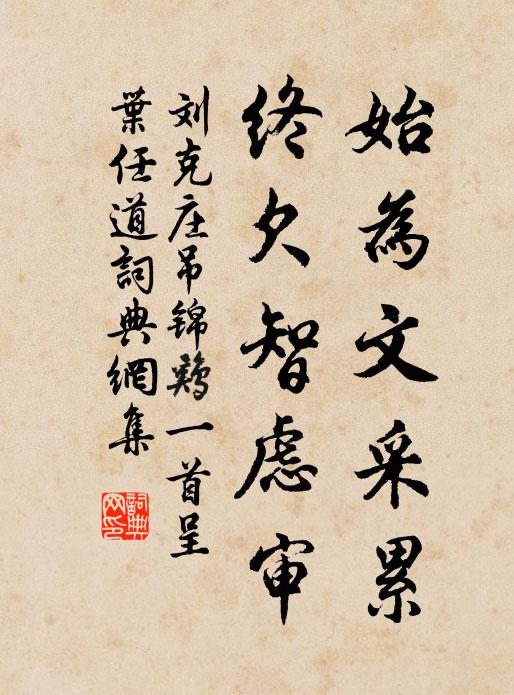 始為文采累
终欠智虑审
刘克庄吊锦鸡一首呈
葉任道詞典網集
詞典网印